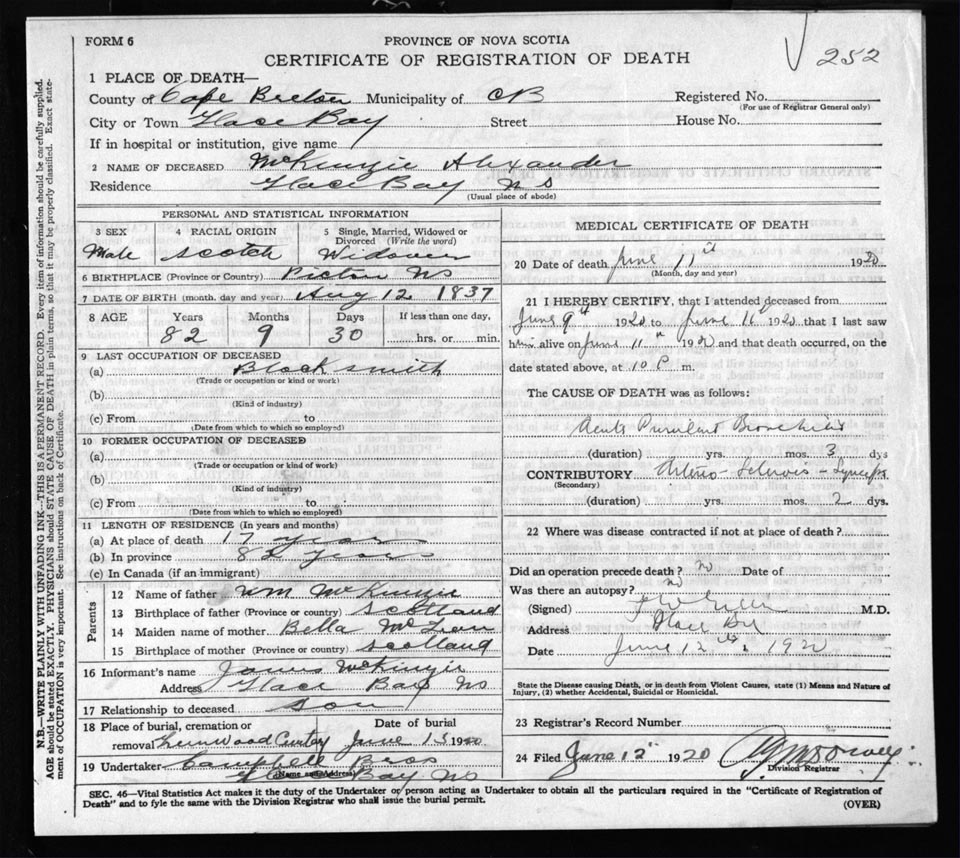 252
FORM 6
PROVINCE OF NOVA SCOTIA
CERTIFICATE OF REGISTRATION OF DEATH
1 PLACE OF DEATH—
County of Cape Breton Municipality of CB Registered No.
(For use of Registrar General only)
City or Town Glace Bay Street House No.
If in hospital or institution, give name
2 NAME OF DECEASED McKenzie Alexander
Residence Glace Bay NS
(Usual place of abode)
PERSONAL AND STATISTICAL INFORMATION
3 SEX 4 RACIAL ORIGIN 5 Single, Married, Widowed or Divorced (Write the word)
Male Scotch Widower
6 BIRTHPLACE (Province or Country) Pictou NS
7 DATE OF BIRTH (month, day and year) Aug 12 1837
8 AGE Years Months Days If less than one day,
82 9 30 hrs. or min.
9 LAST OCCUPATION OF DECEASED
(a) Blacksmith
(Trade or occupation or kind or work)
(b)
(Kind of industry)
(c) From to
(Date from which to which so employed)
10 FORMER OCCUPATION OF DECEASED
(a)
(Trade or occupation or kind of work)
(b)
(Kind of industry)
(c) From to
(Date from which to which so employed)
11 LENGTH OF RESIDENCE (In years and months)
(a) At place of death 17 years
(b) In province 82 years
(c) In Canada (if an immigrant)
Parents
12 Name of father Wm McKenzie
13 Birthplace of father (Province or country) Scotland
14 Maiden name of mother Bella McLean
15 Birthplace of mother (Province or country) Scotland
16 Informant's name James McKenzie
Address Glace Bay NS
17 Relationship to deceased Son
18 Place of burial, cremation or removal Date of burial
June 13 1920
19 Undertaker Campbell Bros
(Name and Address) Glace Bay NS
MEDICAL CERTIFICATE OF DEATH
20 Date of death June 11th 1920
(Month, day and year)
21 I HEREBY CERTIFY, that I attended deceased from
June 9th 1920 to June 11 1920 that I last saw
him alive on June 11th 1920 and that death occurred, on the
date stated above, at 10 P m.
The CAUSE OF DEATH was as follows:
Acute Purulent Bronchitis
(duration) yrs. mos. 3 dys
CONTRIBUTORY Arterio-Sclerosis - Syncope
(Secondary)
(duration) yrs. mos. 2 dys.
22 Where was disease contracted if not at place of death?
Did an operation precede death? no Date of
Was there an autopsy? no
(Signed) M.D.
Address Glace Bay
Date June 12th 1920
State the Disease causing Death, or in death from Violent Causes, state (1) Means and Nature of
Injury, (2) whether Accidental, Suicidal or Homicidal.
23 Registrar's Record Number
24 Filed June 12 1920
Division Registrar
SEC. 46—Vital Statistics Act makes it the duty of the Undertaker or person acting as Undertaker to obtain all the particulars required in the "Certificate of Registration of
Death" and to fyle the same with the Division Registrar who shall issue the burial permit.
(OVER)
N.B.—WRITE PLAINLY WITH UNFADING INK—THIS IS A PERMANENT RECORD. Every item of information should be carefully supplied.
AGE should be stated EXACTLY. PHYSICIANS should STATE CAUSE OF DEATH in plain terms, so that it may be properly classified. Exact state-
ment of OCCUPATION is very important. See instructions on back of Certificate.